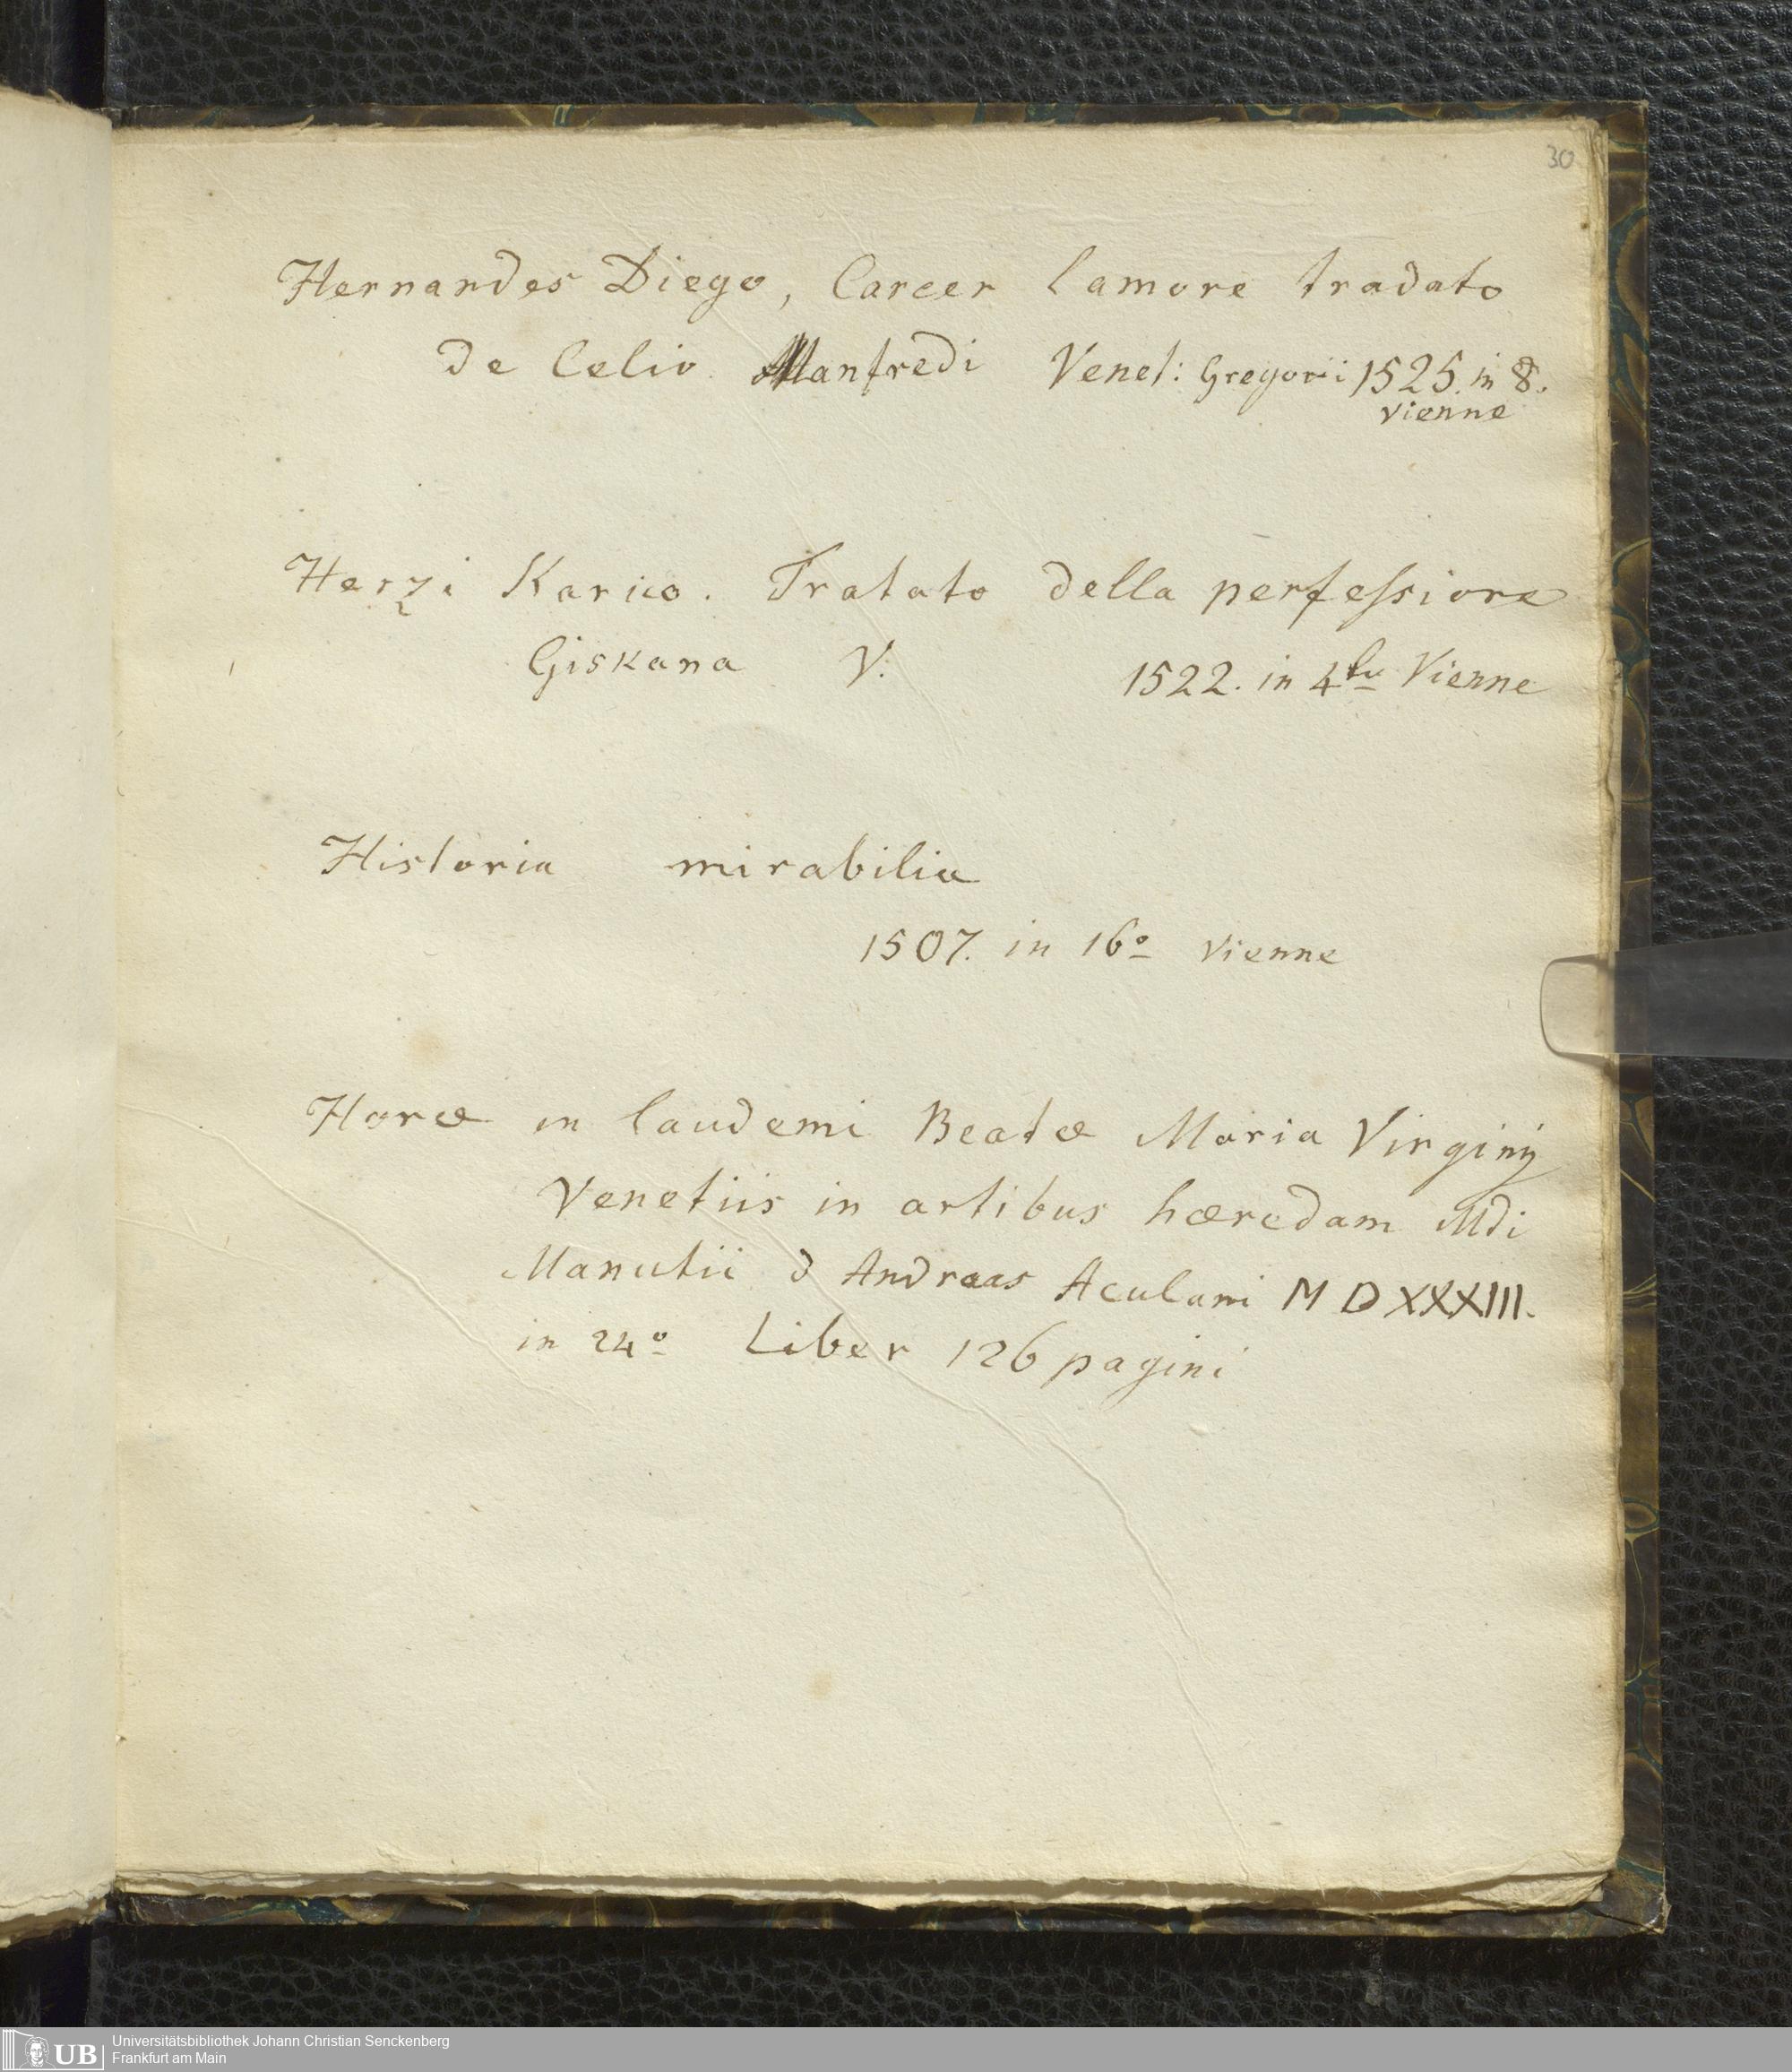 30
Hernandes Diego, Carcer lamore tradato
de Celio Manfredi Venet: Gregorii 1525. in 8.
vienne
Herzi Karico. Tratato della perfessiore
Giskana V. 1522. in 4to Vienne
Historia mirabilia
1507. in 16o vienne
Horæ in laudemi Beatæ Maria Virginÿ
Venetiis in artibus hæredam Mdi
Manutii d Andraas Aculani MDXXXIII.
in 24o Liber 126 pagini
UB Universitätsbibliothek Johann Christian Senckenberg
Frankfurt am Main